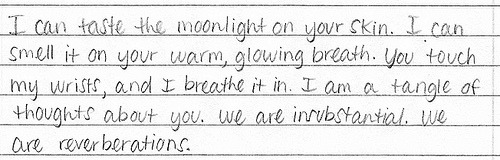 I can taste the moonlight on your skin. I can
smell it on your warm, glowing breath. You touch
my wrists, and I breathe it in. I am a tangle of
thoughts about you. We are insubstantial. We
are reverberations.